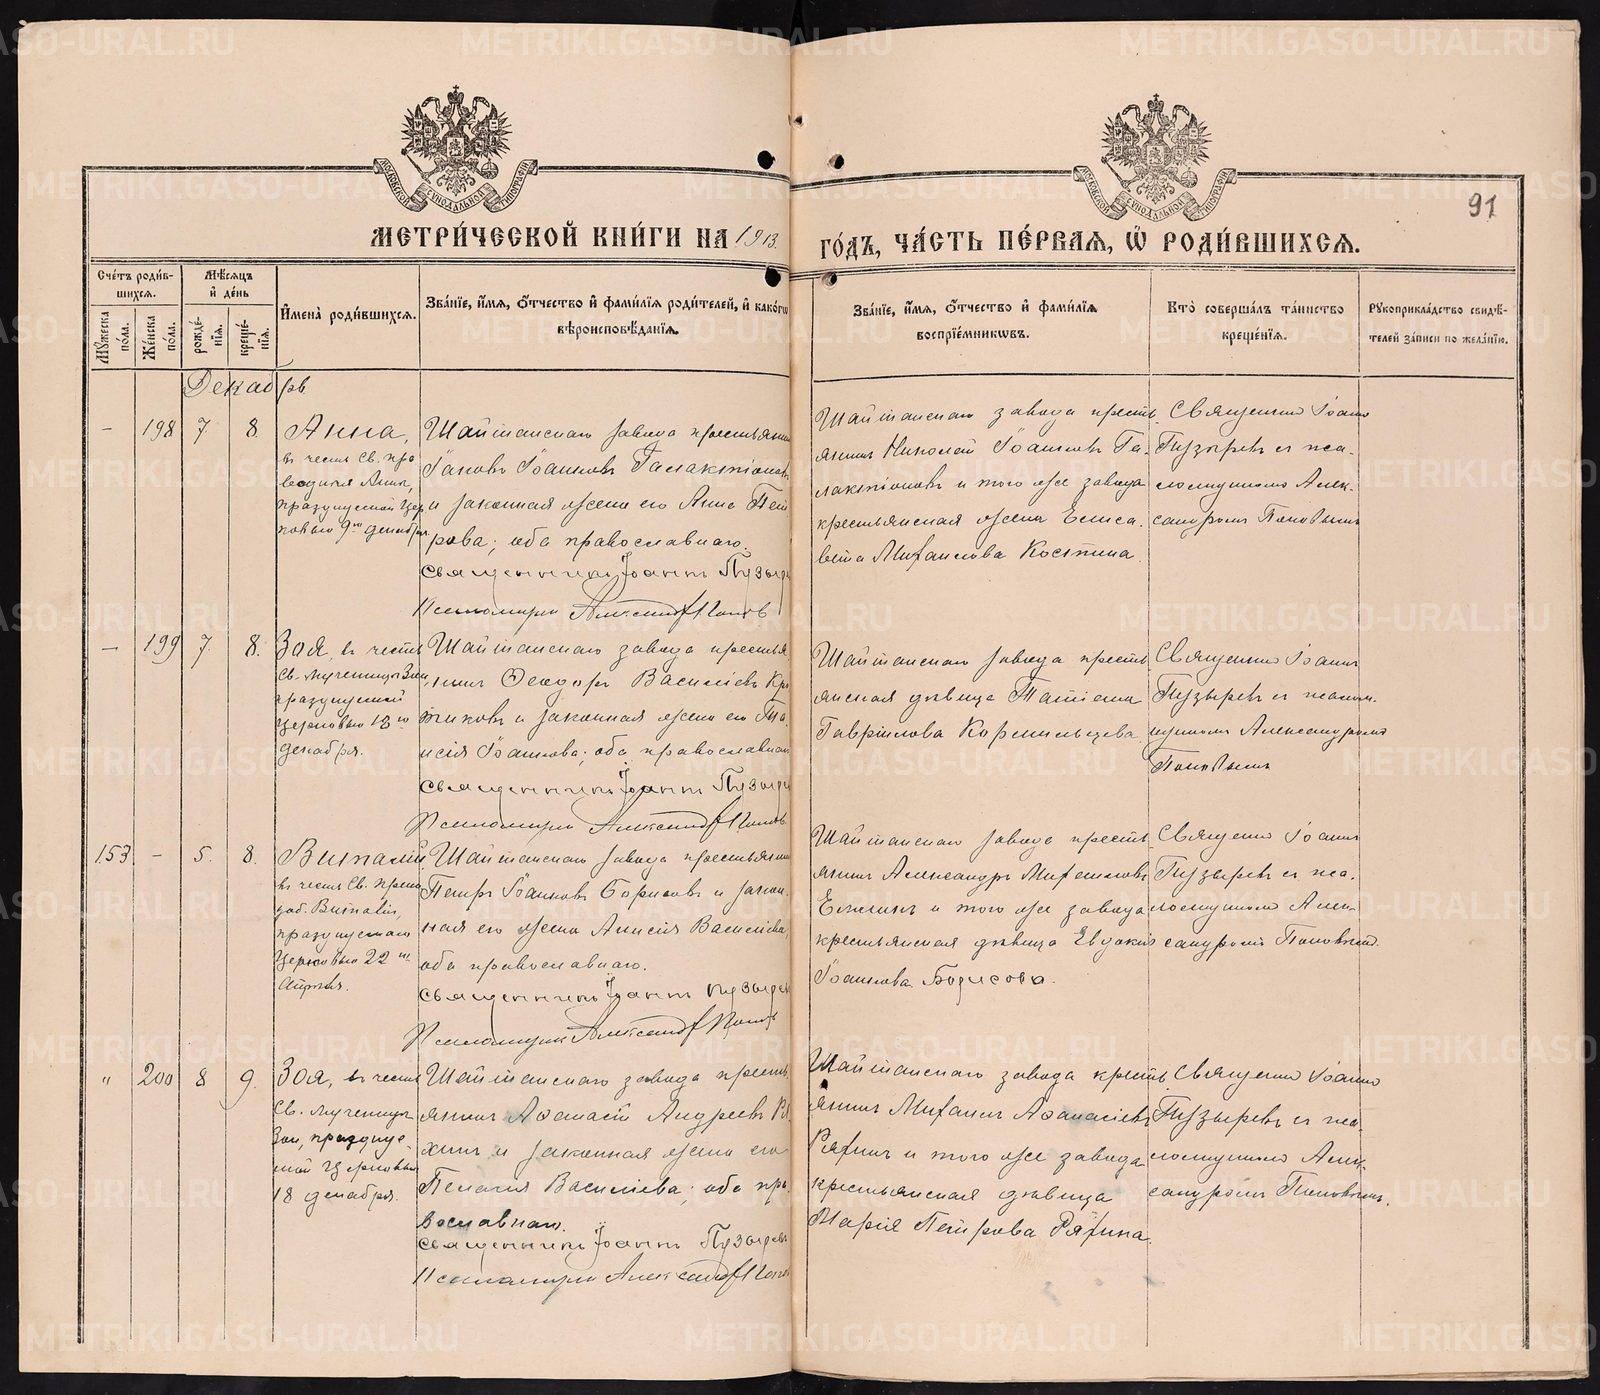 91
МЕТРИ́ЧЕСКОЙ КНИ́ГИ НА 1913
ГО́ДЪ, ЧА́СТЬ ПЕ́РВАЯ, Ѡ҆ РОДИ́ВШИХСЯ.
Сче́тъ роди́в-
шихся.
Мѣ́сяцъ
и҆ де́нь
Му́жеска по́ла.
Же́нска по́ла.
рожде́-нїѧ.
креще́-нїѧ.
И҆мена̀ роди́вшихся.
Зва́нїе, и҆́мѧ, ѻ҆́тчество и҆ фами́лїѧ роди́телей, и҆ како́гѡ
вѣроисповѣ́данїѧ.
Зва́нїе, и҆́мѧ, ѻ҆́тчество и҆ фами́лїѧ
воспрїе́мникѡвъ.
Кто̀ соверша́лъ та́инство
креще́нїѧ.
Рꙋкоприкла́дство свидѣ́-
телей за́писи по жела́нїю.
Декабрь
- 198 7 8.
Анна,
въ честь Св. про
водицы Анны,
празднуемой Цер
ковью 9го декабря.
Шайтанскаго завода крестьянинъ
Іаковъ Іоанновъ Галактіоновъ
и законная жена его Анна Пет
рова; оба православнаго.
Священникъ Іоаннъ Пузырев
Псаломщикъ Александръ Поповъ
Шайтанскаго завода кресть
янинъ Николай Іоанновъ Га-
лактіоновъ и того же завода
крестьянская жена Елиса-
вета Михаилова Костина
Священникъ Іоаннъ
Пузыревъ съ пса-
ломщикомъ Алек-
сандромъ Поповымъ
- 199 7. 8.
Зоя, въ честь
Св. мученицы Зои,
празднуемой
Церковью 18го
декабря.
Шайтанскаго завода крестья
нинъ Ѳеодоръ Василіевъ
и законная жена его Та
исія Іоаннова; оба православнаго
Священникъ Іоаннъ Пузырев
Псаломщикъ Александръ Поповъ
Шайтанскаго завода кресть
янская дѣвица Татіана
Гавріилова Кормильцева
Священникъ Іоаннъ
Пузыревъ съ псалом-
щикомъ Александромъ
Поповымъ
153 - 5. 8.
Виталій
въ честь Св. препо
доб. Виталія,
празднуемаго
Церковью 22го
Апрѣля.
Шайтанскаго завода крестьянинъ
Петръ Іоанновъ Борисовъ и закон-
ная его жена Анисія Василіева,
оба православнаго.
Священникъ Іоаннъ Пузырев
Псаломщикъ Александръ Поповъ
Шайтанскаго завода кресть
янинъ Александръ Михаиловъ
и того же завода
крестьянская дѣвица Евдокія
Іоаннова Борисова.
Священникъ Іоаннъ
Пузыревъ съ пса-
ломщикомъ Алек-
сандромъ Поповымъ.
" 200 8 9.
Зоя, въ честь
Св. мученицы
Зои, празднуе-
мой Церковью
18 декабря.
Шайтанскаго завода кресть
янинъ Аѳанасій Андреевъ Ря
хинъ и законная жена его
Пелагія Василіева; оба пра
вославнаго.
Священникъ Іоаннъ Пузыревъ
Псаломщикъ Александръ Поповъ
Шайтанскаго завода кресть
янинъ Михаилъ Аѳанасіевъ
Ряхинъ и того же завода
крестьянская дѣвица
Марія Петрова Ряхина.
Священникъ Іоаннъ
Пузыревъ съ пса-
ломщикомъ Алек-
сандромъ Поповымъ.
METRIKI.GASO-URAL.RU